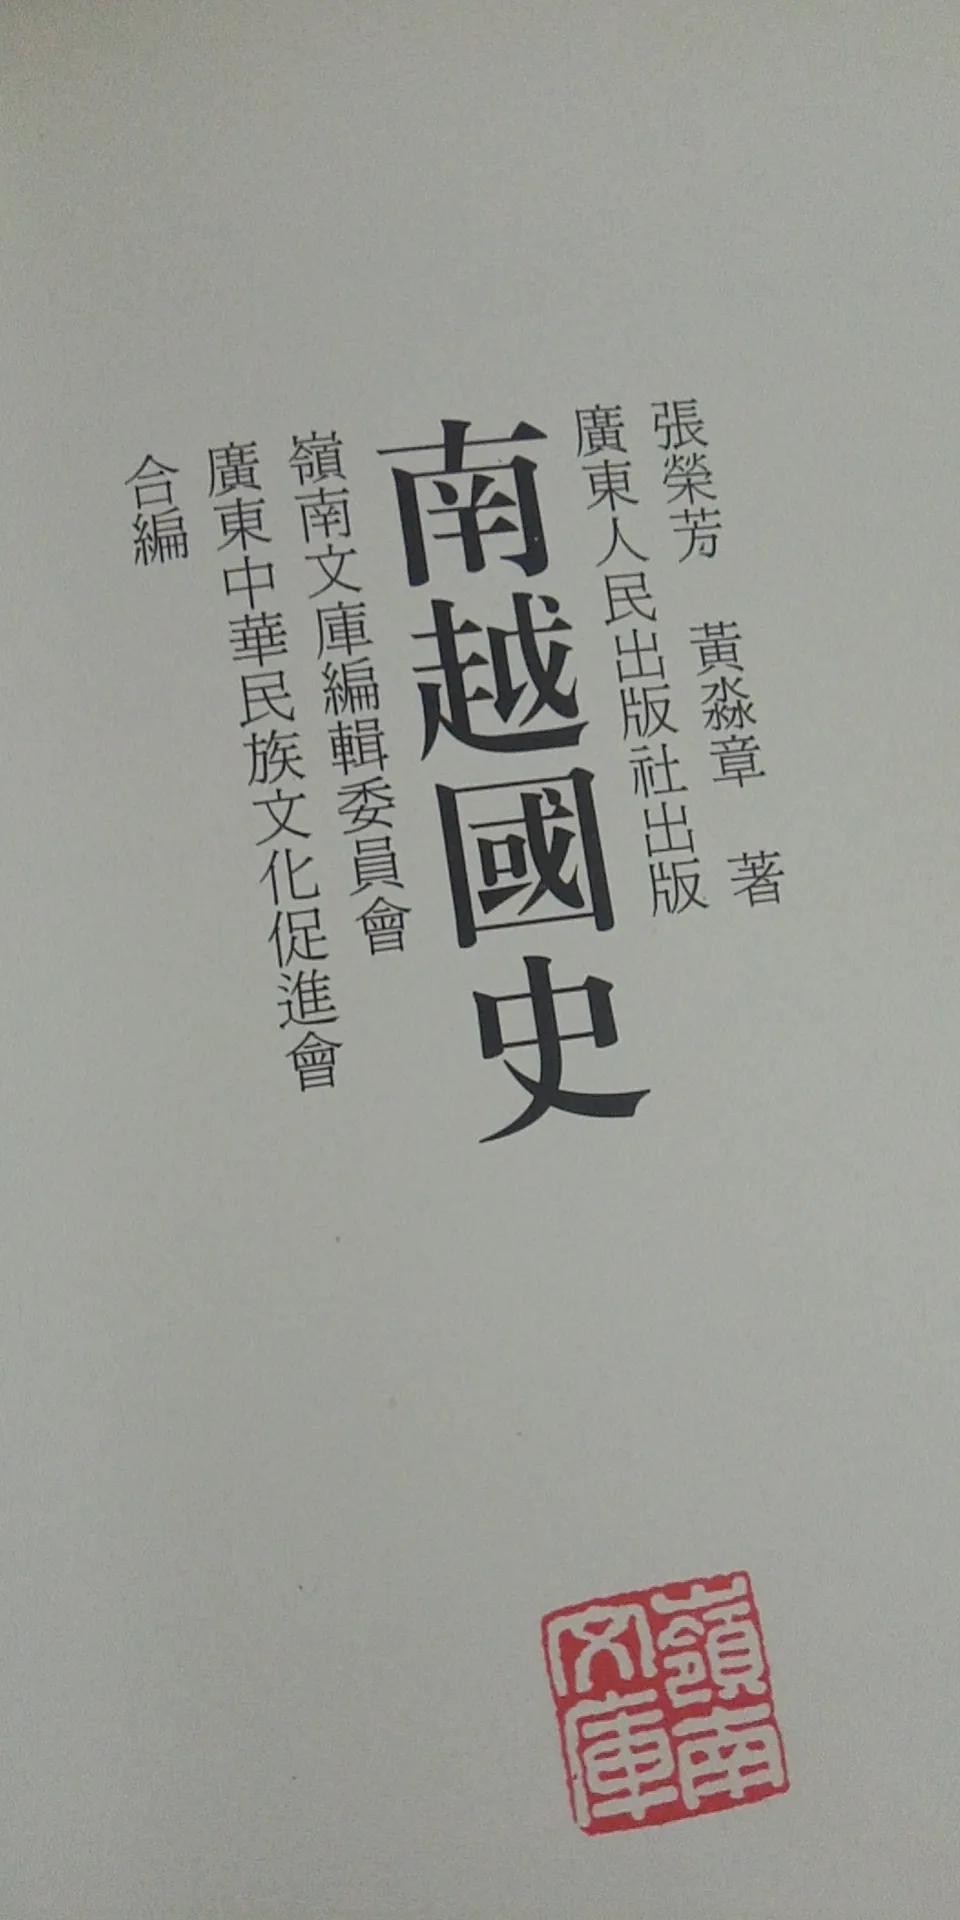 張榮芳 黃淼章 著
廣東人民出版社出版
南越國史
嶺南文庫編輯委員會
廣東中華民族文化促進會
合編
嶺南
文庫